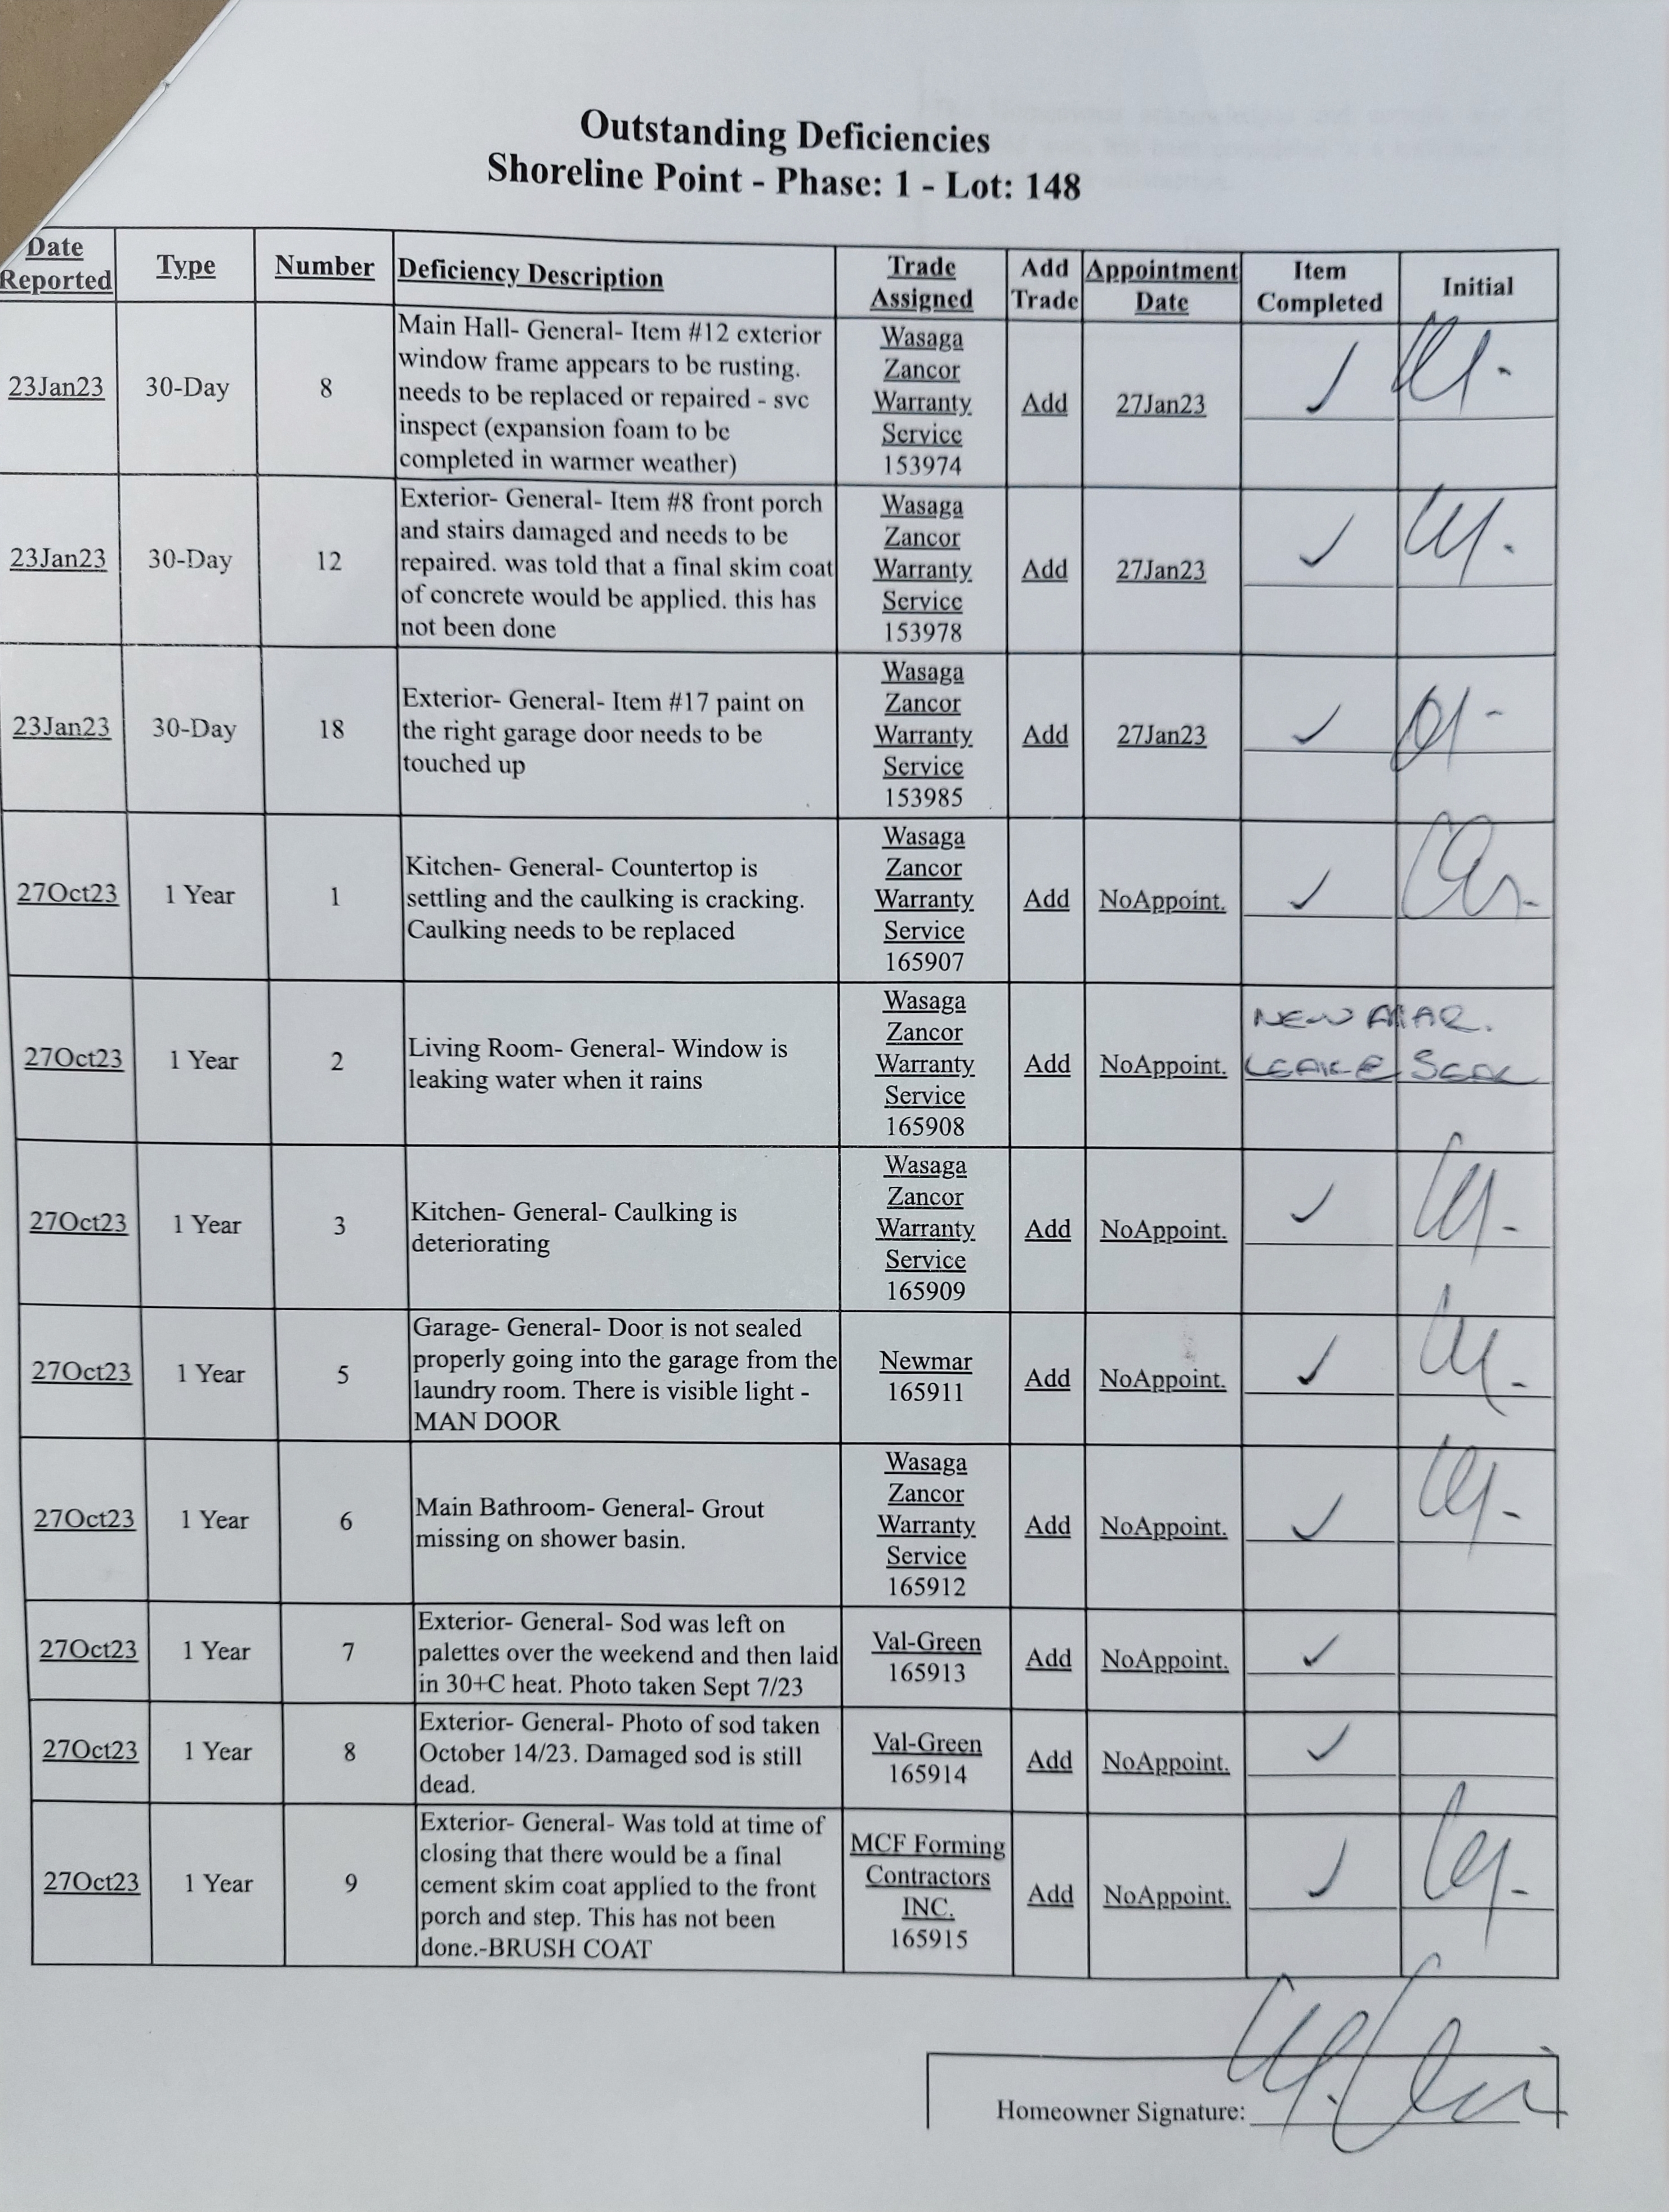 Outstanding Deficiencies
Shoreline Point - Phase: 1 - Lot: 148
Date Reported Type Number Deficiency Description Trade Assigned Add Trade Appointment Date Item Completed Initial
23Jan23 30-Day 8
Main Hall- General- Item #12 exterior
window frame appears to be rusting.
needs to be replaced or repaired - svc
inspect (expansion foam to be
completed in warmer weather)
Wasaga
Zancor
Warranty
Service
153974
Add 27Jan23
23Jan23 30-Day 12
Exterior- General- Item #8 front porch
and stairs damaged and needs to be
repaired. was told that a final skim coat
of concrete would be applied. this has
not been done
Wasaga
Zancor
Warranty
Service
153978
Add 27Jan23
23Jan23 30-Day 18
Exterior- General- Item #17 paint on
the right garage door needs to be
touched up
Wasaga
Zancor
Warranty
Service
153985
Add 27Jan23
27Oct23 1 Year 1
Kitchen- General- Countertop is
settling and the caulking is cracking.
Caulking needs to be replaced
Wasaga
Zancor
Warranty
Service
165907
Add NoAppoint.
27Oct23 1 Year 2
Living Room- General- Window is
leaking water when it rains
Wasaga
Zancor
Warranty
Service
165908
Add NoAppoint.
NEW MAR.
27Oct23 1 Year 3
Kitchen- General- Caulking is
deteriorating
Wasaga
Zancor
Warranty
Service
165909
Add NoAppoint.
27Oct23 1 Year 5
Garage- General- Door is not sealed
properly going into the garage from the
laundry room. There is visible light -
MAN DOOR
Newmar
165911
Add NoAppoint.
27Oct23 1 Year 6
Main Bathroom- General- Grout
missing on shower basin.
Wasaga
Zancor
Warranty
Service
165912
Add NoAppoint.
27Oct23 1 Year 7
Exterior- General- Sod was left on
palettes over the weekend and then laid
in 30+C heat. Photo taken Sept 7/23
Val-Green
165913
Add NoAppoint.
27Oct23 1 Year 8
Exterior- General- Photo of sod taken
October 14/23. Damaged sod is still
dead.
Val-Green
165914
Add NoAppoint.
27Oct23 1 Year 9
Exterior- General- Was told at time of
closing that there would be a final
cement skim coat applied to the front
porch and step. This has not been
done.-BRUSH COAT
MCF Forming
Contractors
INC.
165915
Add NoAppoint.
Homeowner Signature: